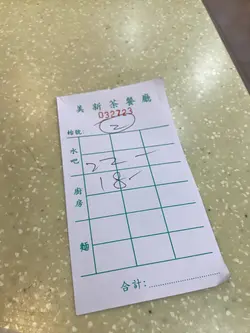 美新茶餐廳
032723
檯號: 2
水吧 22 —
廚房 18 —
麵
合計:................